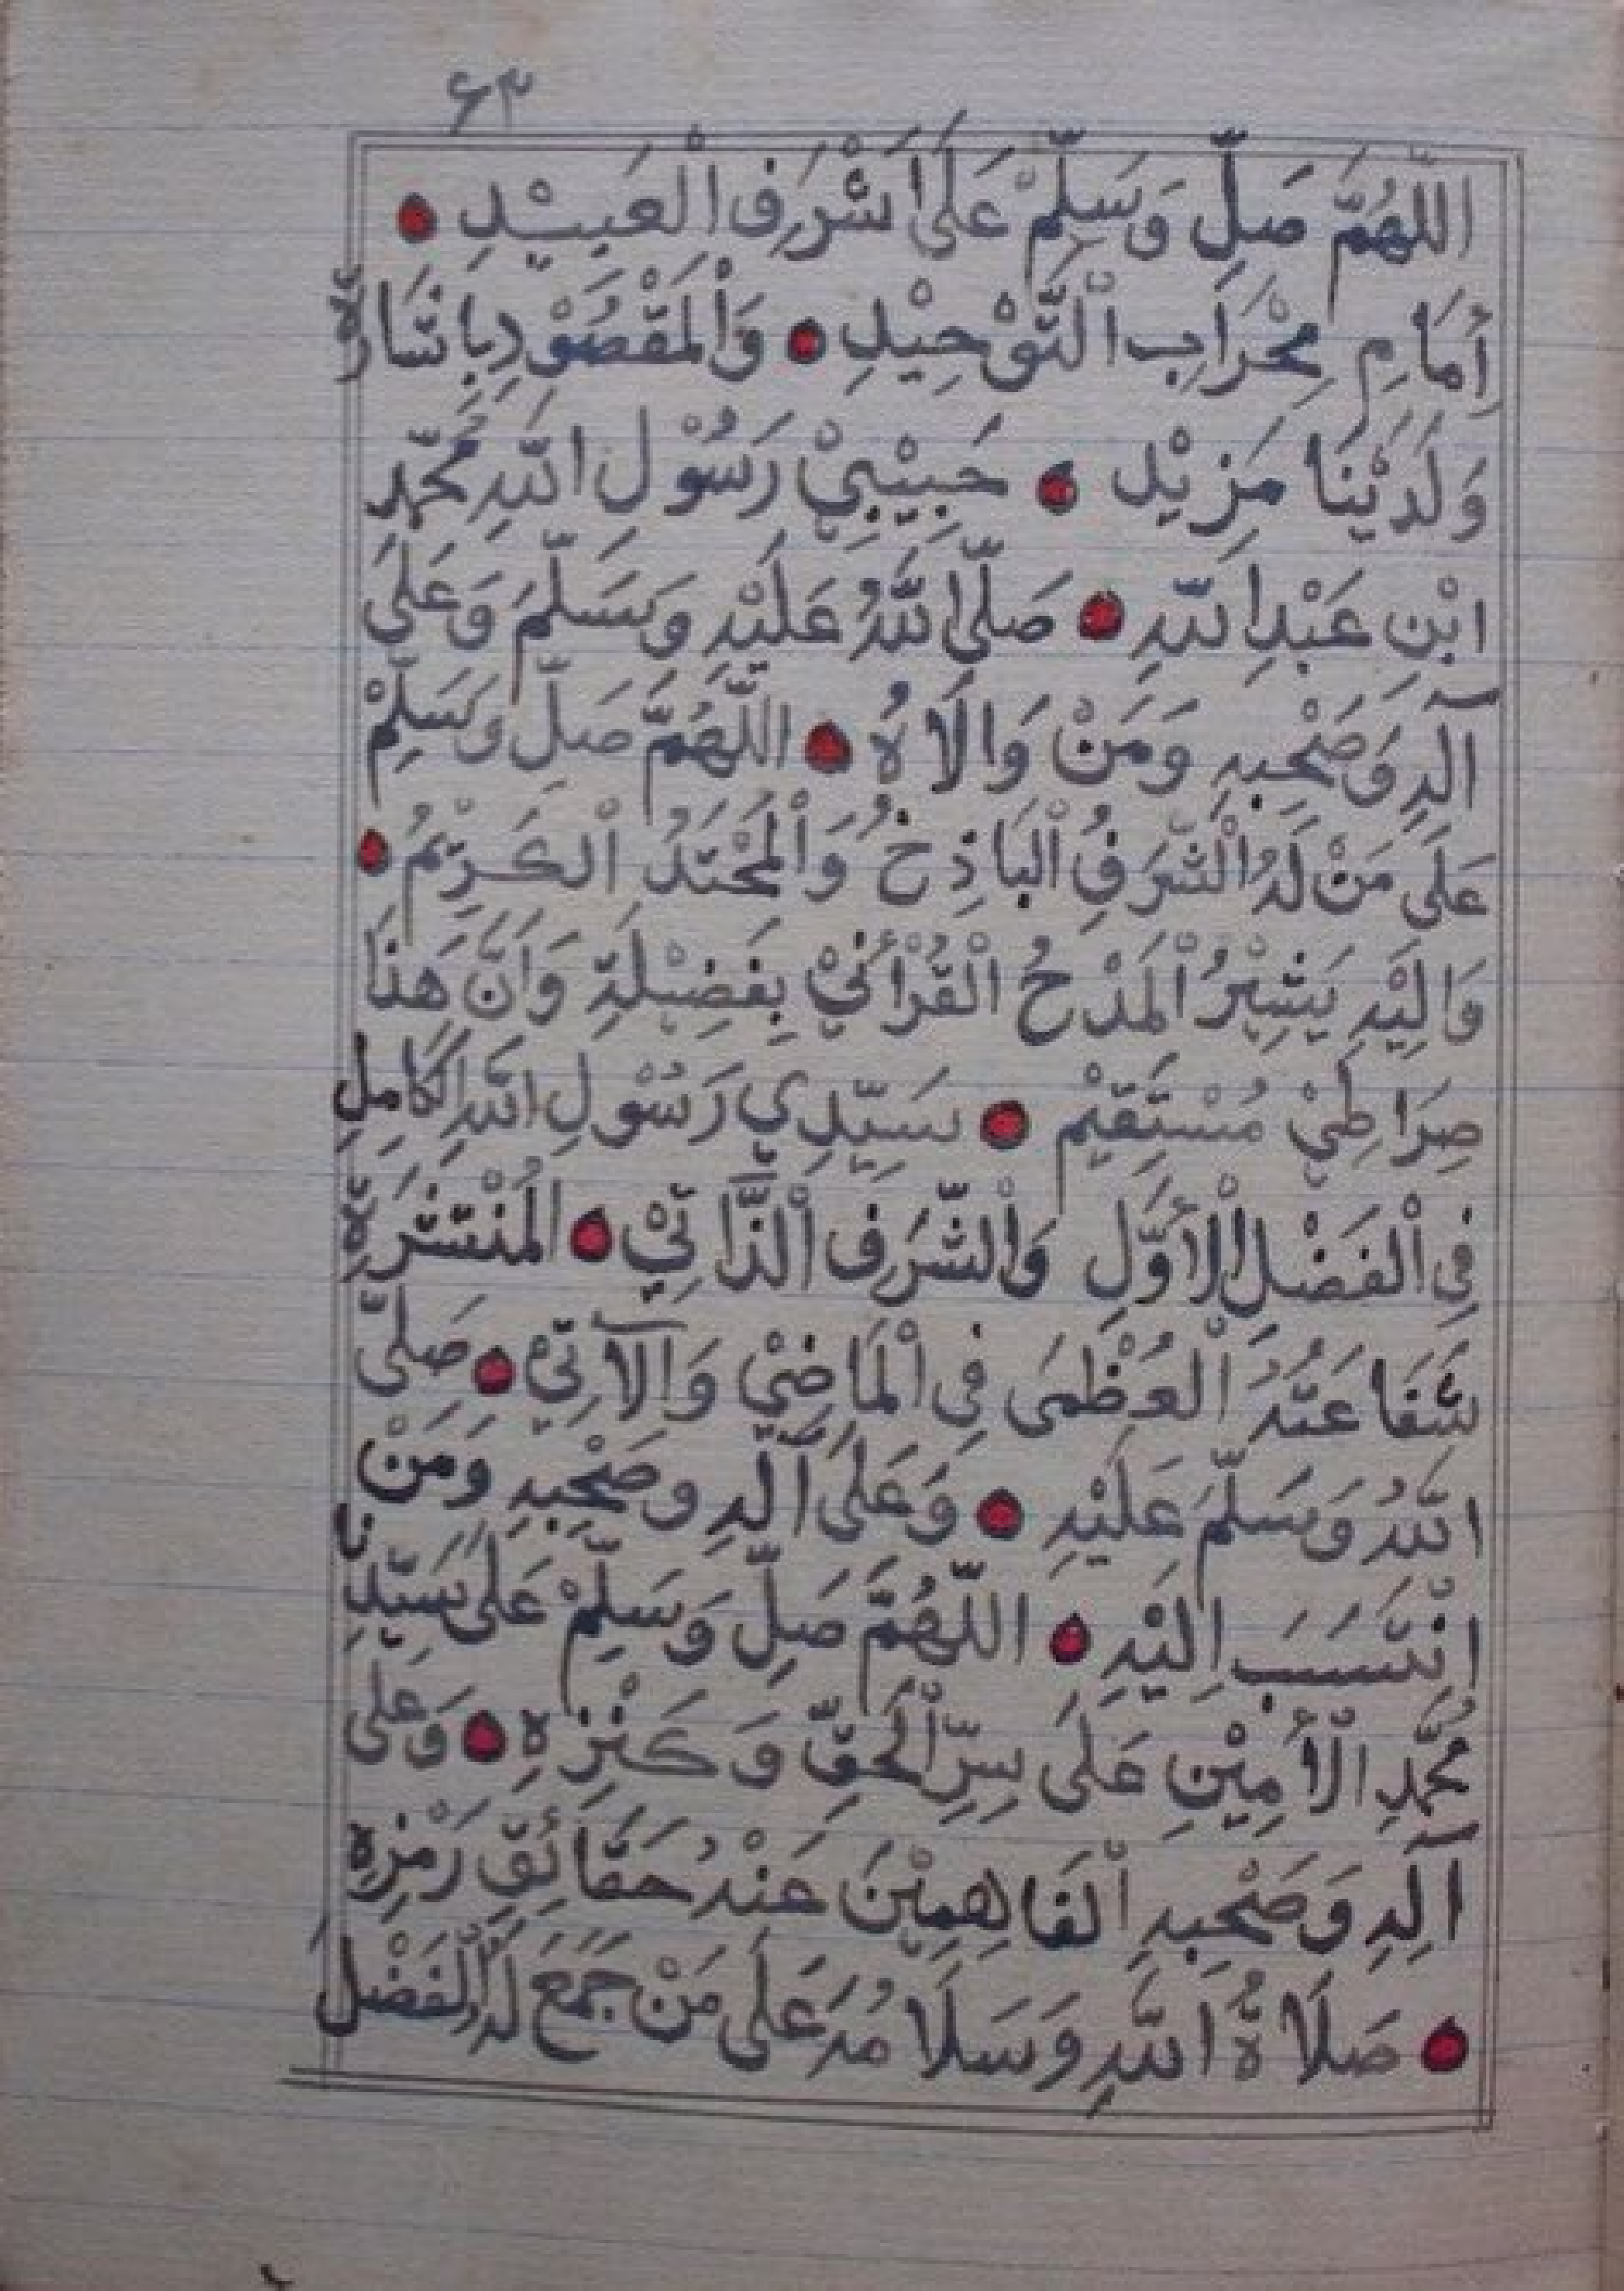 ۶۳
اللّٰهُمَّ صَلِّ وَسَلِّمْ عَلَى اَشْرَفِ الْعَبِيْدِ
أَمَامِ مِحْرَابِ الْتَّوْحِيْدِ وَالْمَقْصُوْدِ بِإِشَارَةِ
وَلَدَيْنَا مَزِيْد حَبِيْبِيْ رَسُوْل اللّٰهِ مُحَمَّدِ
ابْنِ عَبْدِ اللّٰهِ صَلَّى اللّٰهُ عَلَيْهِ وَسَلَّمَ وَعَلَى
آلِهِ وَصَحْبِهِ وَمَنْ وَالَاهُ اللّٰهُمَّ صَلِّ وَسَلِّمْ
عَلَى مَنْ لَهُ الْشَّرَفُ الْبَاذِخُ وَالْمَحْتَدُ الْكَرِيْمُ
وَاِلَيْهِ يَشِيْرُ الْمَدْحُ الْقُرْأَنِيْ بِفَضِيْلَةِ وَاَنَّ هَذَا
صِرَاطِيْ مُسْتَقِيْم سَيِّدِي رَسُوْلِ اللّٰهِ الْكَامِلِ
فِى الْفَضْلِ الْأَوَّلِ وَالْشَّرَفِ الْذَّاتِيْ الْمُنْتَشِرَةِ
شَفَاعَتُهُ الْعُظْمَى فِى الْمَاضِيْ وَالْآتِيْ صَلَّى
اللّٰهُ وَسَلَّمَ عَلَيْهِ وَعَلَى آلِهِ وصَحْبِهِ وَمَنْ
انْتَسَبَ اِلَيْهِ اللّٰهُمَّ صَلِّ وَسَلِّمْ عَلَى سَيِّدِنَا
مُحَمَّدِ الْأَمِيْنِ عَلَى سِرِّ الْحَقِّ وَكَنْزِهِ وَعَلَى
آلِهِ وَصَحْبِهِ الْفَاهِمِيْنَ عَنْهُ حَقَائِقِ رَمْزِهِ
صَلَاةُ اللّٰهِ وَسَلَامُهُ عَلَى مَنْ جَمَعَ لَهُ الْفَضْلَ